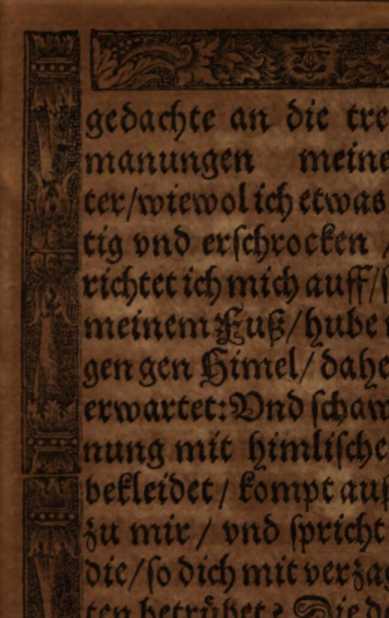 gedachte an die tre
manungen meine
ter/wiewol ich etwas
tig vnd erschrocken /
richtet ich mich auff/s
meinem Fuß/hube
gen gen Himel/dahe
erwartet:Vnd schaw
nung mit himlische
bekleidet / kompt auf
zu mir / vnd spricht
die/so dich mit verzag
ten betrübet? Die d